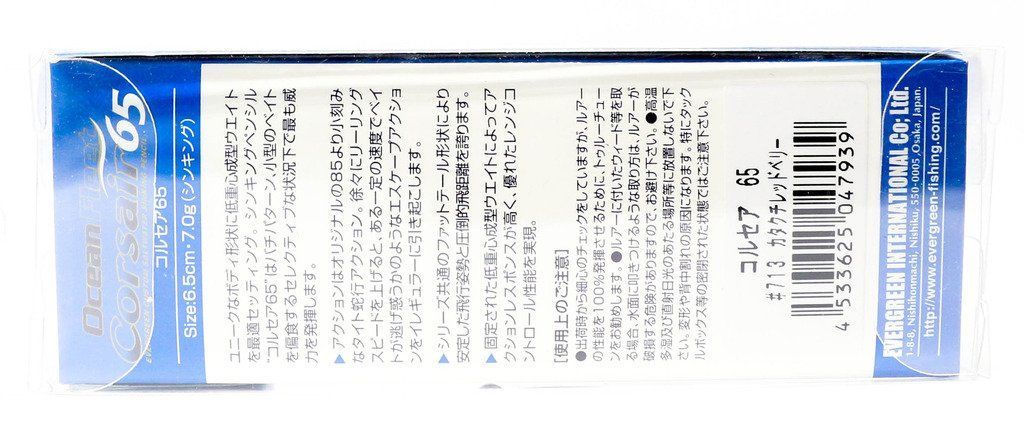 Ocean Feet
Corsair65
コルセア65
Size:6.5cm・7.0g(シンキング)
ユニークなボディ形状に低重心成型ウエイト
を最適セッティング。シンキングペンシル
"コルセア65"はバチパターン、小型のベイト
を偏食するセレクティブな状況下で最も威
力を発揮します。
▶アクションはオリジナルの85より小刻み
なタイト蛇行アクション。徐々にリーリング
スピードを上げると、ある一定の速度でベイ
トが逃げ惑うかのようなエスケープアクショ
ンをイレギュラーに引き起こします。
▶シリーズ共通のファットテール形状により
安定した飛行姿勢と圧倒的飛距離を誇ります。
▶固定された低重心成型ウエイトによってア
クションレスポンスが高く、優れたレンジコ
ントロール性能を実現。
[使用上のご注意]
●出荷時から細心のチェックをしていますが、ルアー
の性能を100%発揮させるために、トゥルーチュー
ンをお勧めします。●ルアーに付いたウィード等を取
る場合、水面に叩きつけるような取り方は、ルアーが
破損する危険がありますので、お避け下さい。●高温
多湿及び直射日光のあたる場所等に放置しないで下
さい。変形や背中割れの原因になります。特にタック
ルボックス等の密閉された状態ではご注意下さい。
コルセア 65
#713 カタクチレッドベリー
4 533625 047939
EVERGREEN INTERNATIONAL Co; Ltd.
1-8-8, Nishihonmachi, Nishiku, 550-0005 ,Osaka, Japan.
http://www.evergreen-fishing.com/